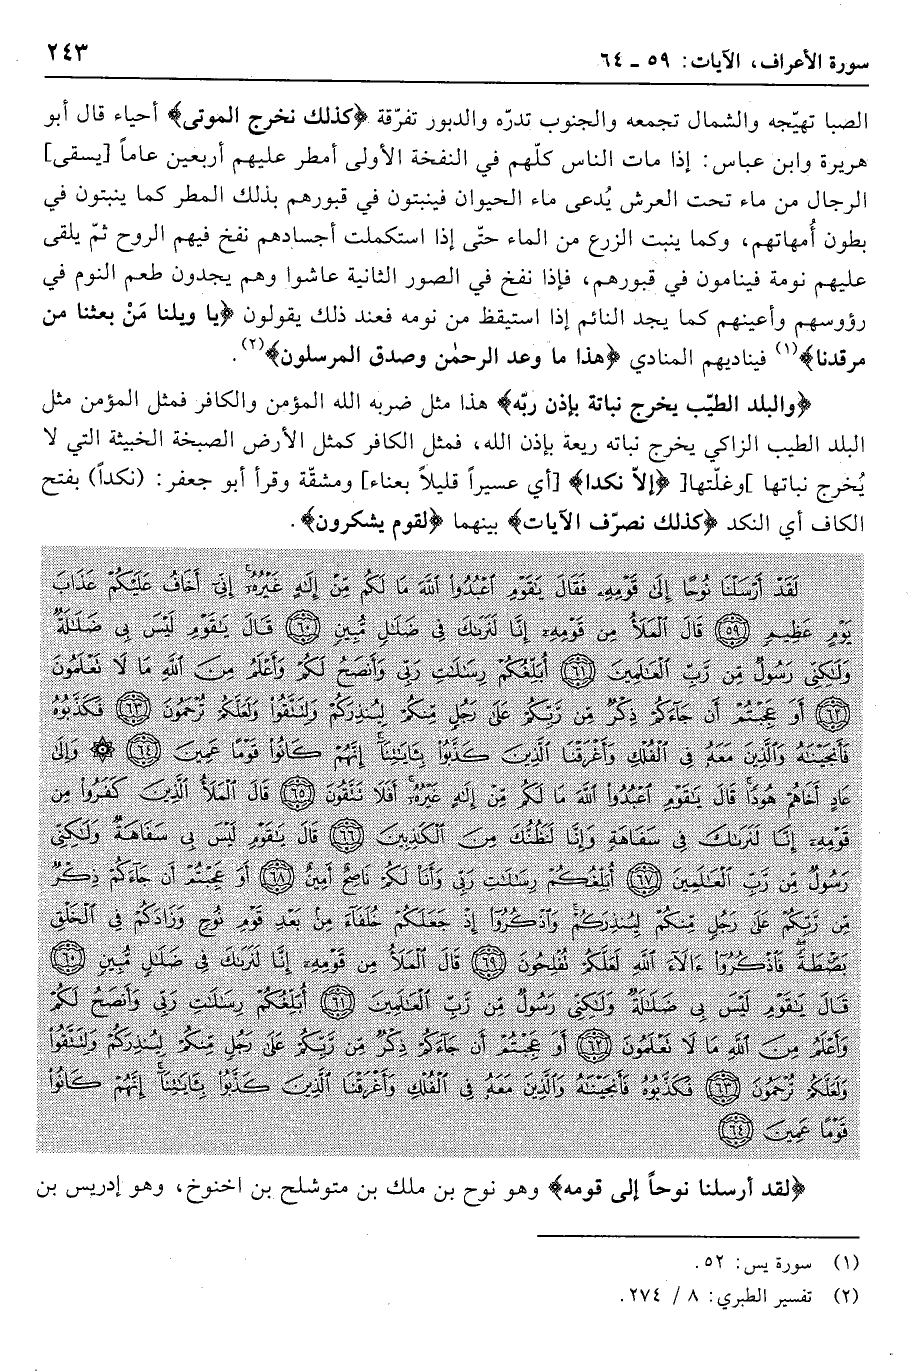 سورة الأعراف، الآيات: ٥٩ ـ ٦٤
٢٤٣
الصبا تهيّجه والشمال تجمعه والجنوب تدرّه والدبور تفرّقة ﴿كذلك نخرج الموتى﴾ أحياء قال أبو
هريرة وابن عباس: إذا مات الناس كلّهم في النفخة الأولى أمطر عليهم أربعين عاماً [يسقى]
الرجال من ماء تحت العرش يُدعى ماء الحيوان فينبتون في قبورهم بذلك المطر كما ينبتون في
بطون أُمهاتهم، وكما ينبت الزرع من الماء حتّى إذا استكملت أجسادهم نفخ فيهم الروح ثمّ يلقى
عليهم نومة فينامون في قبورهم، فإذا نفخ في الصور الثانية عاشوا وهم يجدون طعم النوم في
رؤوسهم وأعينهم كما يجد النائم إذا استيقظ من نومه فعند ذلك يقولون ﴿يا ويلنا مَنْ بعثنا من
مرقدنا﴾(١) فيناديهم المنادي ﴿هذا ما وعد الرحمٰن وصدق المرسلون﴾(٢).
﴿والبلد الطيّب يخرج نباتة بإذن ربّه﴾ هذا مثل ضربه الله المؤمن والكافر فمثل المؤمن مثل
البلد الطيب الزاكي يخرج نباته ريعة بإذن الله، فمثل الكافر كمثل الأرض الصبخة الخبيثة التي لا
يُخرج نباتها ]وغلّتها[ ﴿إلاّ نكدا﴾ [أي عسيراً قليلاً بعناء] ومشقّة وقرأ أبو جعفر: (نكداً) بفتح
الكاف أي النكد ﴿كذلك نصرّف الآيات﴾ بينهما ﴿لقوم يشكرون﴾.
لَقَدْ أَرْسَلْنَا نُوحًا إِلَى قَوْمِهِۦ فَقَالَ يَٰقَوْمِ ٱعْبُدُوا۟ ٱللَّهَ مَا لَكُم مِّنْ إِلَٰهٍ غَيْرُهُۥٓ إِنِّىٓ أَخَافُ عَلَيْكُمْ عَذَابَ
يَوْمٍ عَظِيمٍ ﴿٥٩﴾ قَالَ ٱلْمَلَأُ مِن قَوْمِهِۦٓ إِنَّا لَنَرَىٰكَ فِى ضَلَٰلٍ مُّبِينٍ ﴿٦٠﴾ قَالَ يَٰقَوْمِ لَيْسَ بِى ضَلَٰلَةٌ
وَلَٰكِنِّى رَسُولٌ مِّن رَّبِّ ٱلْعَٰلَمِينَ ﴿٦١﴾ أُبَلِّغُكُمْ رِسَٰلَٰتِ رَبِّى وَأَنصَحُ لَكُمْ وَأَعْلَمُ مِنَ ٱللَّهِ مَا لَا تَعْلَمُونَ
﴿٦٢﴾ أَوَ عَجِبْتُمْ أَن جَآءَكُمْ ذِكْرٌ مِّن رَّبِّكُمْ عَلَىٰ رَجُلٍ مِّنكُمْ لِيُنذِرَكُمْ وَلِتَتَّقُوا۟ وَلَعَلَّكُمْ تُرْحَمُونَ ﴿٦٣﴾ فَكَذَّبُوهُ
فَأَنجَيْنَٰهُ وَٱلَّذِينَ مَعَهُۥ فِى ٱلْفُلْكِ وَأَغْرَقْنَا ٱلَّذِينَ كَذَّبُوا۟ بِـَٔايَٰتِنَآ إِنَّهُمْ كَانُوا۟ قَوْمًا عَمِينَ ﴿٦٤﴾ ۞ وَإِلَىٰ
عَادٍ أَخَاهُمْ هُودًا قَالَ يَٰقَوْمِ ٱعْبُدُوا۟ ٱللَّهَ مَا لَكُم مِّنْ إِلَٰهٍ غَيْرُهُۥٓ أَفَلَا تَتَّقُونَ ﴿٦٥﴾ قَالَ ٱلْمَلَأُ ٱلَّذِينَ كَفَرُوا۟ مِن
قَوْمِهِۦٓ إِنَّا لَنَرَىٰكَ فِى سَفَاهَةٍ وَإِنَّا لَنَظُنُّكَ مِنَ ٱلْكَٰذِبِينَ ﴿٦٦﴾ قَالَ يَٰقَوْمِ لَيْسَ بِى سَفَاهَةٌ وَلَٰكِنِّى
رَسُولٌ مِّن رَّبِّ ٱلْعَٰلَمِينَ ﴿٦٧﴾ أُبَلِّغُكُمْ رِسَٰلَٰتِ رَبِّى وَأَنَا۠ لَكُمْ نَاصِحٌ أَمِينٌ ﴿٦٨﴾ أَوَ عَجِبْتُمْ أَن جَآءَكُمْ ذِكْرٌ
مِّن رَّبِّكُمْ عَلَىٰ رَجُلٍ مِّنكُمْ لِيُنذِرَكُمْ وَٱذْكُرُوٓا۟ إِذْ جَعَلَكُمْ خُلَفَآءَ مِنۢ بَعْدِ قَوْمِ نُوحٍ وَزَادَكُمْ فِى ٱلْخَلْقِ
بَصْۜطَةً فَٱذْكُرُوٓا۟ ءَالَآءَ ٱللَّهِ لَعَلَّكُمْ تُفْلِحُونَ ﴿٦٩﴾ قَالَ ٱلْمَلَأُ مِن قَوْمِهِۦٓ إِنَّا لَنَرَىٰكَ فِى ضَلَٰلٍ مُّبِينٍ ﴿٦٠﴾
قَالَ يَٰقَوْمِ لَيْسَ بِى ضَلَٰلَةٌ وَلَٰكِنِّى رَسُولٌ مِّن رَّبِّ ٱلْعَٰلَمِينَ ﴿٦١﴾ أُبَلِّغُكُمْ رِسَٰلَٰتِ رَبِّى وَأَنصَحُ لَكُمْ
وَأَعْلَمُ مِنَ ٱللَّهِ مَا لَا تَعْلَمُونَ ﴿٦٢﴾ أَوَ عَجِبْتُمْ أَن جَآءَكُمْ ذِكْرٌ مِّن رَّبِّكُمْ عَلَىٰ رَجُلٍ مِّنكُمْ لِيُنذِرَكُمْ وَلِتَتَّقُوا۟
وَلَعَلَّكُمْ تُرْحَمُونَ ﴿٦٣﴾ فَكَذَّبُوهُ فَأَنجَيْنَٰهُ وَٱلَّذِينَ مَعَهُۥ فِى ٱلْفُلْكِ وَأَغْرَقْنَا ٱلَّذِينَ كَذَّبُوا۟ بِـَٔايَٰتِنَآ إِنَّهُمْ كَانُوا۟
قَوْمًا عَمِينَ ﴿٦٤﴾
﴿لقد أرسلنا نوحاً إلى قومه﴾ وهو نوح بن ملك بن متوشلح بن اخنوخ، وهو إدريس بن
(١) سورة يس: ٥٢.
(٢) تفسير الطبري: ٨ / ٢٧٤.